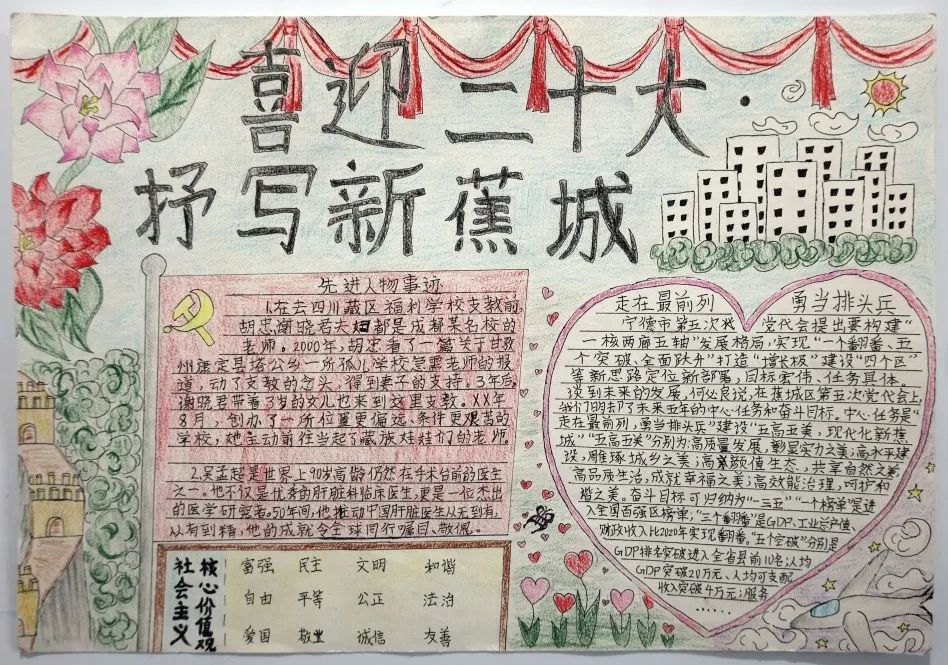 喜迎二十大·
抒写新蕉城
先进人物事迹
1.在去四川藏区福利学校支教前,
胡忠、谢晓君夫妇都是成都某名校的
老师。2000年,胡忠看了一篇关于甘孜
州康定县塔公乡一所孤儿学校急需老师的报
道,动了支教的念头,得到妻子的支持。3年后,
谢晓君带着3岁的女儿也来到这里支教。XX年
8月,创办了一所位置更偏远、条件更艰苦的
学校,她主动前往当起了藏族娃娃们的老师。
2.吴孟超是世界上90岁高龄仍然在手术台前的医生
之一。他不仅是优秀的肝脏科临床医生,更是一位杰出
的医学研究者。50年间,他推动中国肝脏医生从无到有,
从有到精,他的成就令全球同行瞩目、敬佩。
社会主义
核心价值观
富强 民主 文明 和谐
自由 平等 公正 法治
爱国 敬业 诚信 友善
走在最前列 勇当排头兵
宁德市第五次 党代会提出要构建“
一核两廊五轴”发展格局,实现“一个翻番、五
个突破、全面跃升”打造“增长极”建设“四个区”
等新思路定位新部署,目标宏伟、任务具体。
谈到未来的发展,何必良说,在蕉城区第五次党代会上,
我们明确了未来五年的中心任务和奋斗目标。中心任务是“
走在最前列,勇当排头兵”建设“五高五美,现代化新蕉
城”“五高五美”分别为:高质量发展,彰显实力之美;高水平建
设,雕琢城乡之美;高颜值生态,共享自然之美
高品质生活,成就幸福之美;高效能治理,呵护和
谐之美。奋斗目标可归纳为“一三五”“一个榜单”是进
入全国百强区榜单,“三个翻番”是GDP、工业总产值、
财政收入比2020年实现翻番。“五个突破”分别是
GDP排名突破进入全省县前10名;人均
GDP突破20万元、人均可支配
收入突破4万元;服务
......